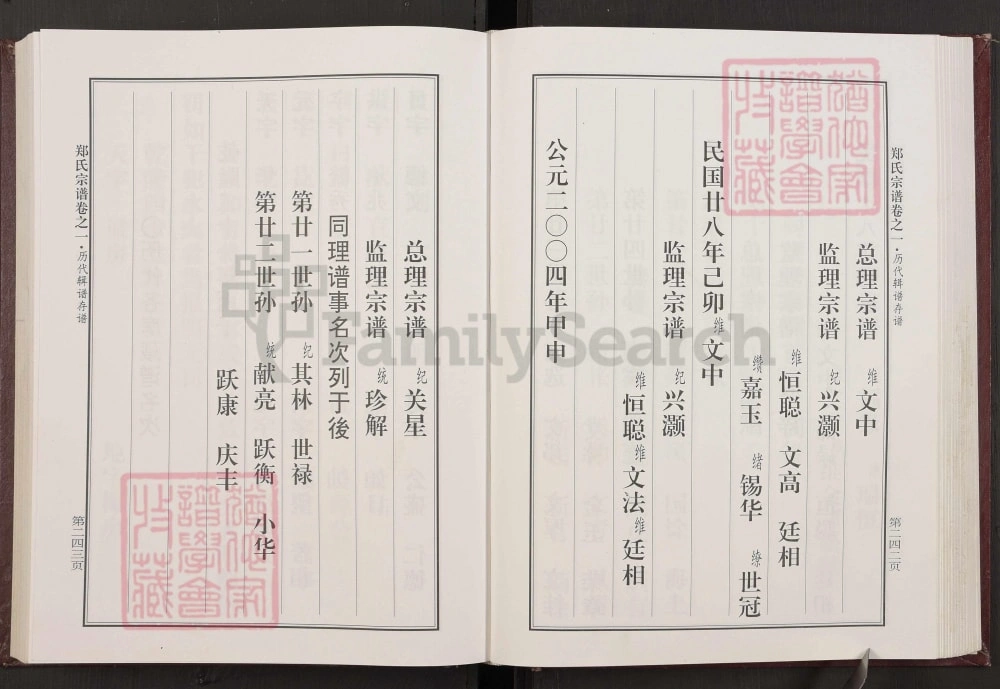 郑氏宗谱卷之一·历代辑谱存谱
第二四二页
总理宗谱 维文中
监理宗谱 纪兴灏
维恒聪 文高 廷相
缵嘉玉 绪锡华 缭世冠
民国廿八年己卯维文中
监理宗谱 纪兴灏
维恒聪维文法维廷相
公元二〇〇四年甲申
总理宗谱 纪关星
监理宗谱 统珍解
同理谱事名次列于後
第廿一世孙 纪其林 世禄
第廿二世孙 统献亮 跃衡 小华
跃康 庆丰
郑氏宗谱卷之一·历代辑谱存谱
第二四三页
FamilySearch